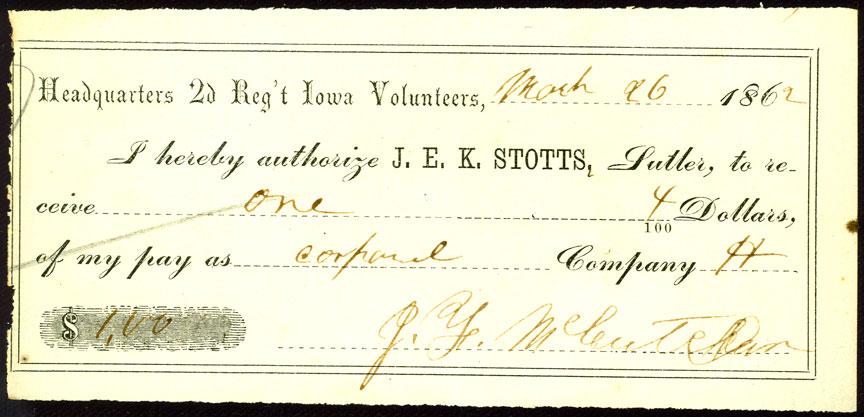 Headquarters 2d Reg't Iowa Volunteers, March 26 1862
I hereby authorize J. E. K. STOTTS, Sutler, to re-
ceive one 4/100 Dollars,
of my pay as corporal Company H
$ 1,00 J. F. McCutchan